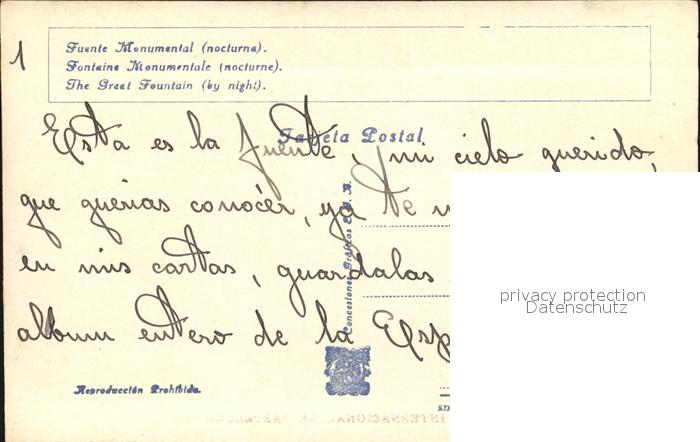 1
Fuente Monumental (nocturna).
Fontaine Monumentale (nocturne).
The Great Fountain (by night).
Tarjeta Postal
Esta es la fuente, mi cielo querido,
que querias conocer, ya te
en mis cartas, guardalas
album entero de la Exp
Concesiones Gráficas
Reproducción Prohibida.
privacy protection
Datenschutz